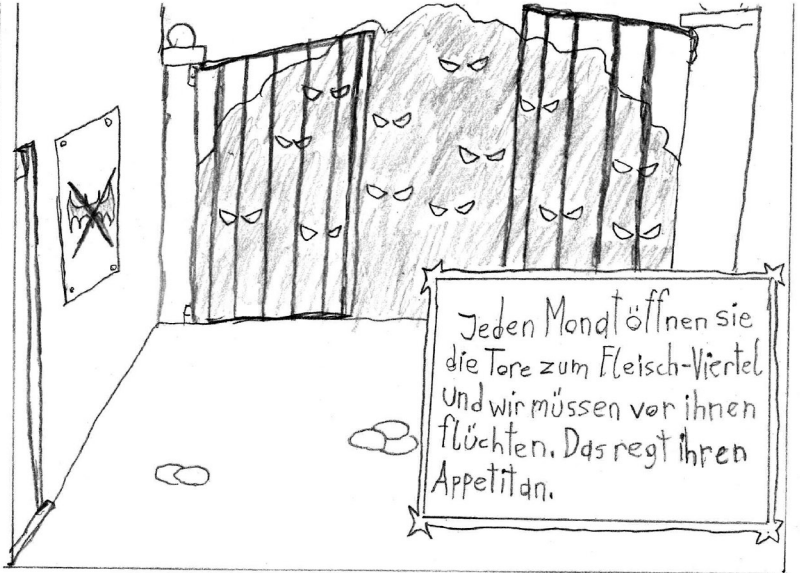 Jeden Monat öffnen sie
die Tore zum Fleisch-Viertel
und wir müssen vor ihnen
flüchten. Das regt ihren
Appetit an.